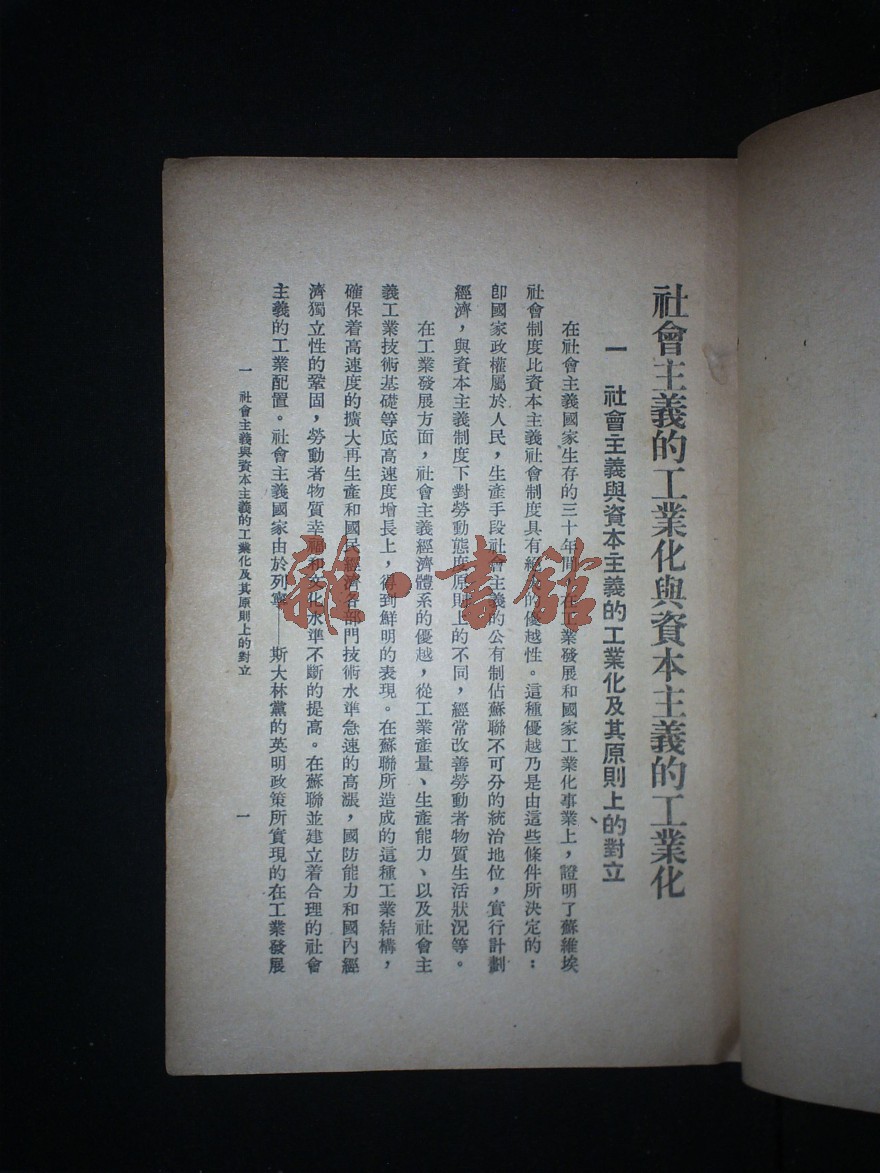 社會主義的工業化與資本主義的工業化
一 社會主義與資本主義的工業化及其原則上的對立
在社會主義國家生存的三十年間，在工業發展和國家工業化事業上，證明了蘇維埃
社會制度比資本主義社會制度具有絕大的優越性。這種優越乃是由這些條件所決定的：
卽國家政權屬於人民，生產手段社會主義的公有制佔蘇聯不可分的統治地位，實行計劃
經濟，與資本主義制度下對勞動態度原則上的不同，經常改善勞動者物質生活狀況等。
在工業發展方面，社會主義經濟體系的優越，從工業產量、生產能力、以及社會主
義工業技術基礎等底高速度增長上，得到鮮明的表現。在蘇聯所造成的這種工業結構，
確保着高速度的擴大再生產和國民經濟各部門技術水準急速的高漲，國防能力和國內經
濟獨立性的鞏固，勞動者物質幸福和文化水準不斷的提高。在蘇聯並建立着合理的社會
主義的工業配置。社會主義國家由於列寧——斯大林黨的英明政策所實現的在工業發展
一 社會主義與資本主義的工業化及其原則上的對立
一
雜·書館